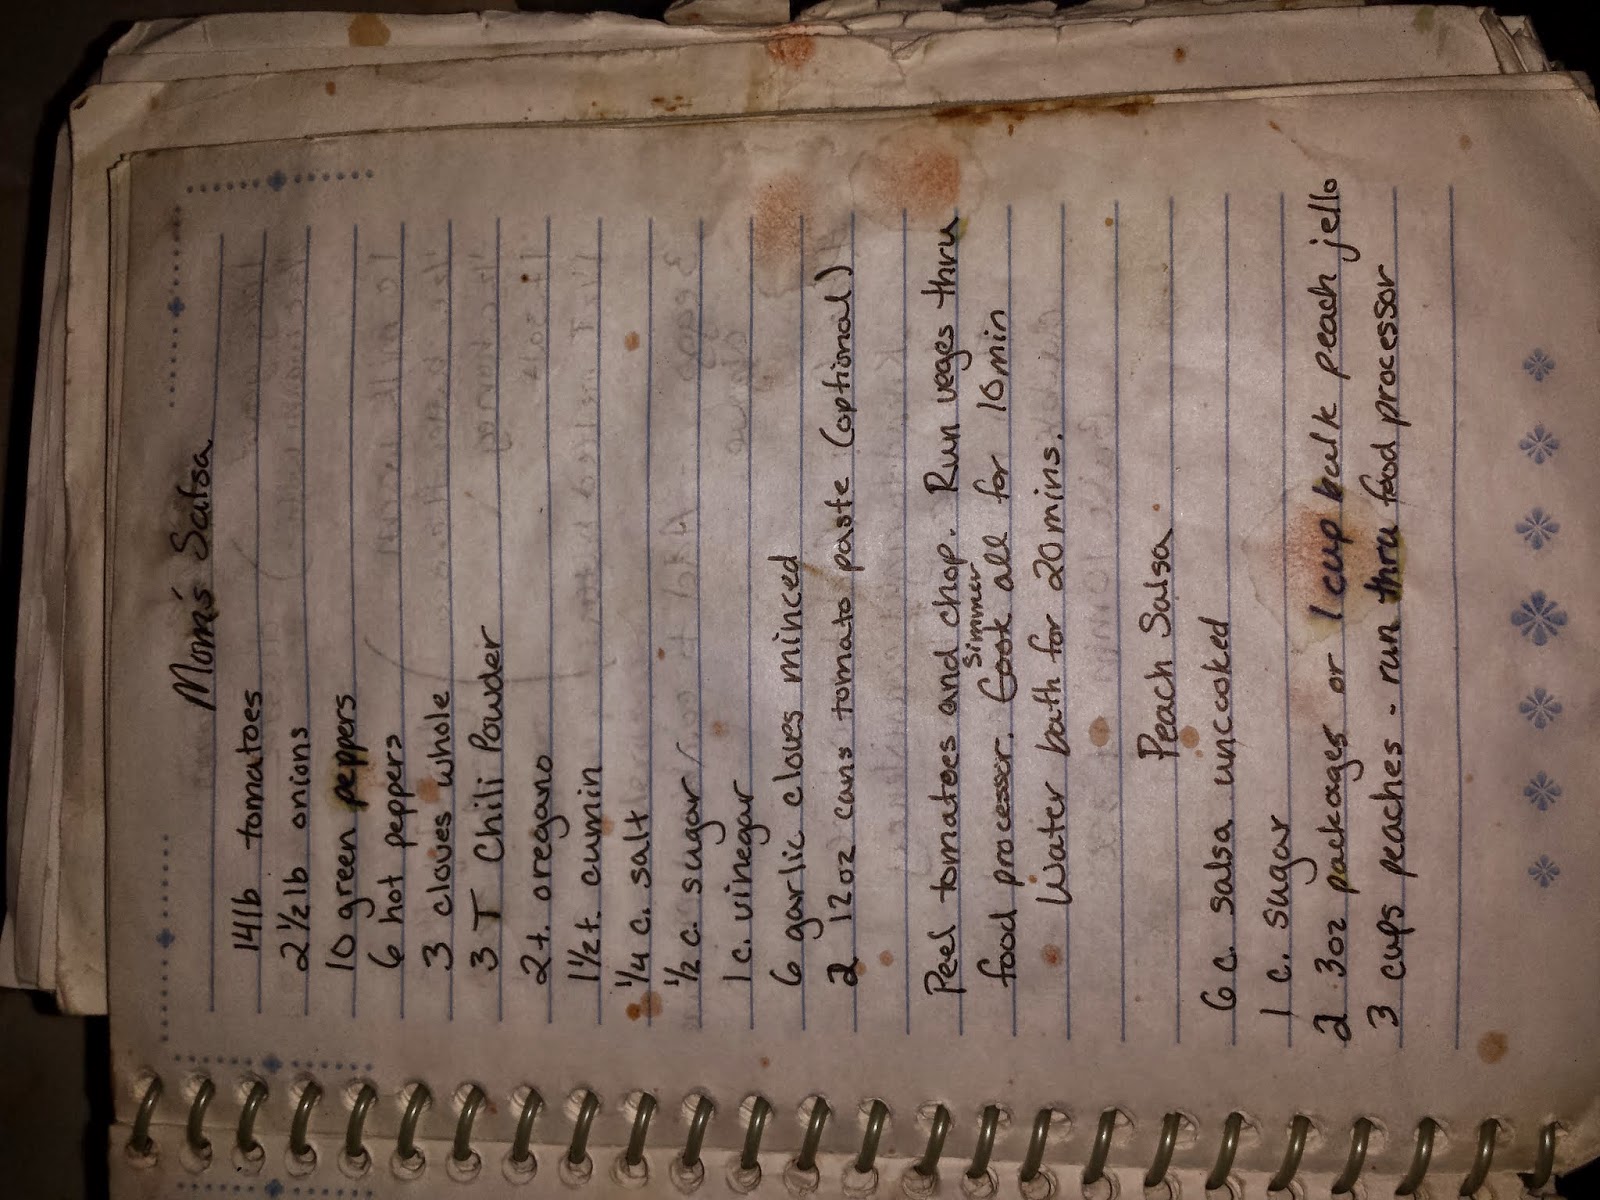 Mom's Salsa
14 lb tomatoes
2 1/2 lb onions
10 green peppers
6 hot peppers
3 cloves whole
3 T Chili Powder
2 t. oregano
1 1/2 t. cumin
1/4 c. salt
1/2 c. sugar
1 c. vinegar
6 garlic cloves minced
2 12 oz cans tomato paste (optional)
Peel tomatoes and chop. Run veges thru
food processer. Cook Simmer all for 10 min
Water bath for 20 mins.
Peach Salsa
6 c. salsa uncooked
1 c. sugar
2 3oz packages or 1 cup bulk peach jello
3 cups peaches - run thru food processor